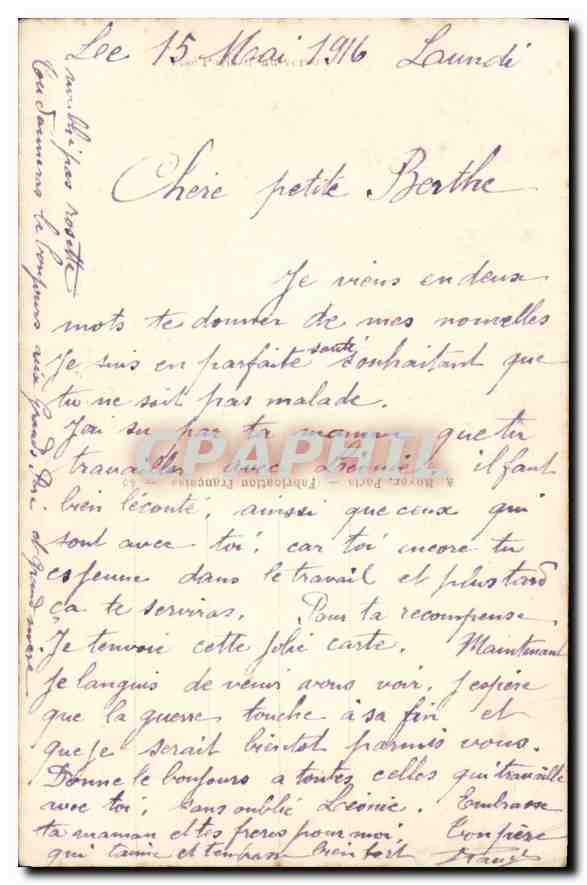 Lee 15 Mai 1916 Laundi
Chére petite Berthe
Je viens en deux
mots te donner de mes nouvelles
Je suis en parfaite santé souhaitant que
tu ne soit pas malade.
J'ai su par ta maman que tu
travaille avec Léonie, il faut
bien lécouté, ainssi que ceux qui
sont avec toi, car toi encore tu
es jeune dans le travail et plus tard
ça te serviras. Pour ta recompense
Je tenvoie cette jolie carte. Maintenant
je languis de venir vous voir. J'espère
que la guerre touche à sa fin et
que je serait bientot parmis vous.
Donne le bonjours a toutes celles qui travaille
avec toi, sans oublié Léonie. Embrasse
ta maman et tes freres pour moi. Ton père
qui taime et tembrasse bien fort
noublie pas rosette
Tu donneras le bonjours aux grands père et grand mere
A. Noyer, Paris - Fabrication Française
CPAPHIL